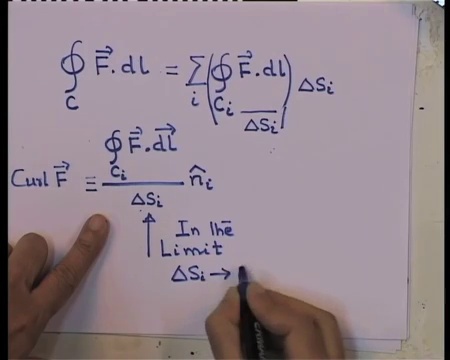 ∮_C F⃗.dl = Σ_i (∮_{C_i} F⃗.dl / ΔS_i) ΔS_i
Curl F⃗ ≡ ∮_{C_i} F⃗.dl⃗ / ΔS_i n̂_i
↑ In the
Limit
ΔS_i →